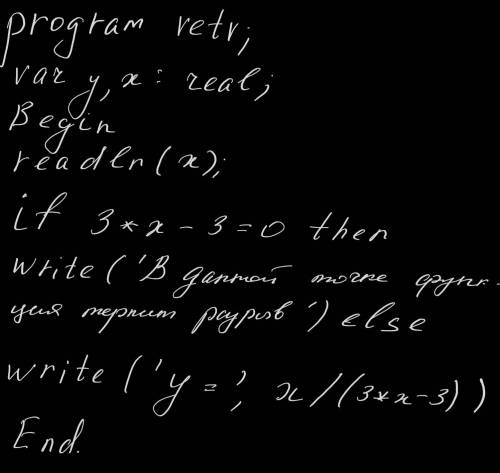 program retr;
var y, x : real;
Begin
readln(x);
if 3*x-3=0 then
write('В данной точке функ-
ция терпит разрыв') else
write('y=', x/(3*x-3))
End.